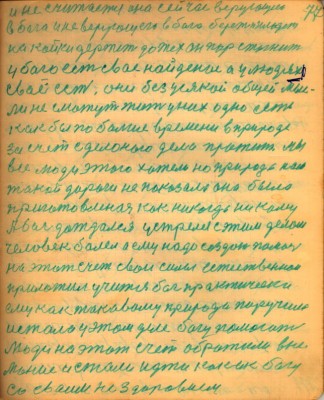 и не считается она сейчас верующего 77
в бога и неверующего в бога безчеловеч
на какой держит до тех он пор стоит
у бога есть свае найденое а у людей
сваё есть, они без усякой общей мы
ли не смогут жить у них одно есть
как бы по болше времени в природе
за счет сделоного дела прожить мы
все люди этого хотели но природа нам
такой дороги не показала она была
приготовленая как никогда никому
Я вас дождался устретил с этим делом
человек болел а ему надо создать помощ
на этот счет свои силы естественного
приложил учится бог практически
ему как таковому природа поручила
и стало у этом деле богу помогать
Люди на этот счет обратили вни
мание и стали идти как к богу
со своим нездоровием